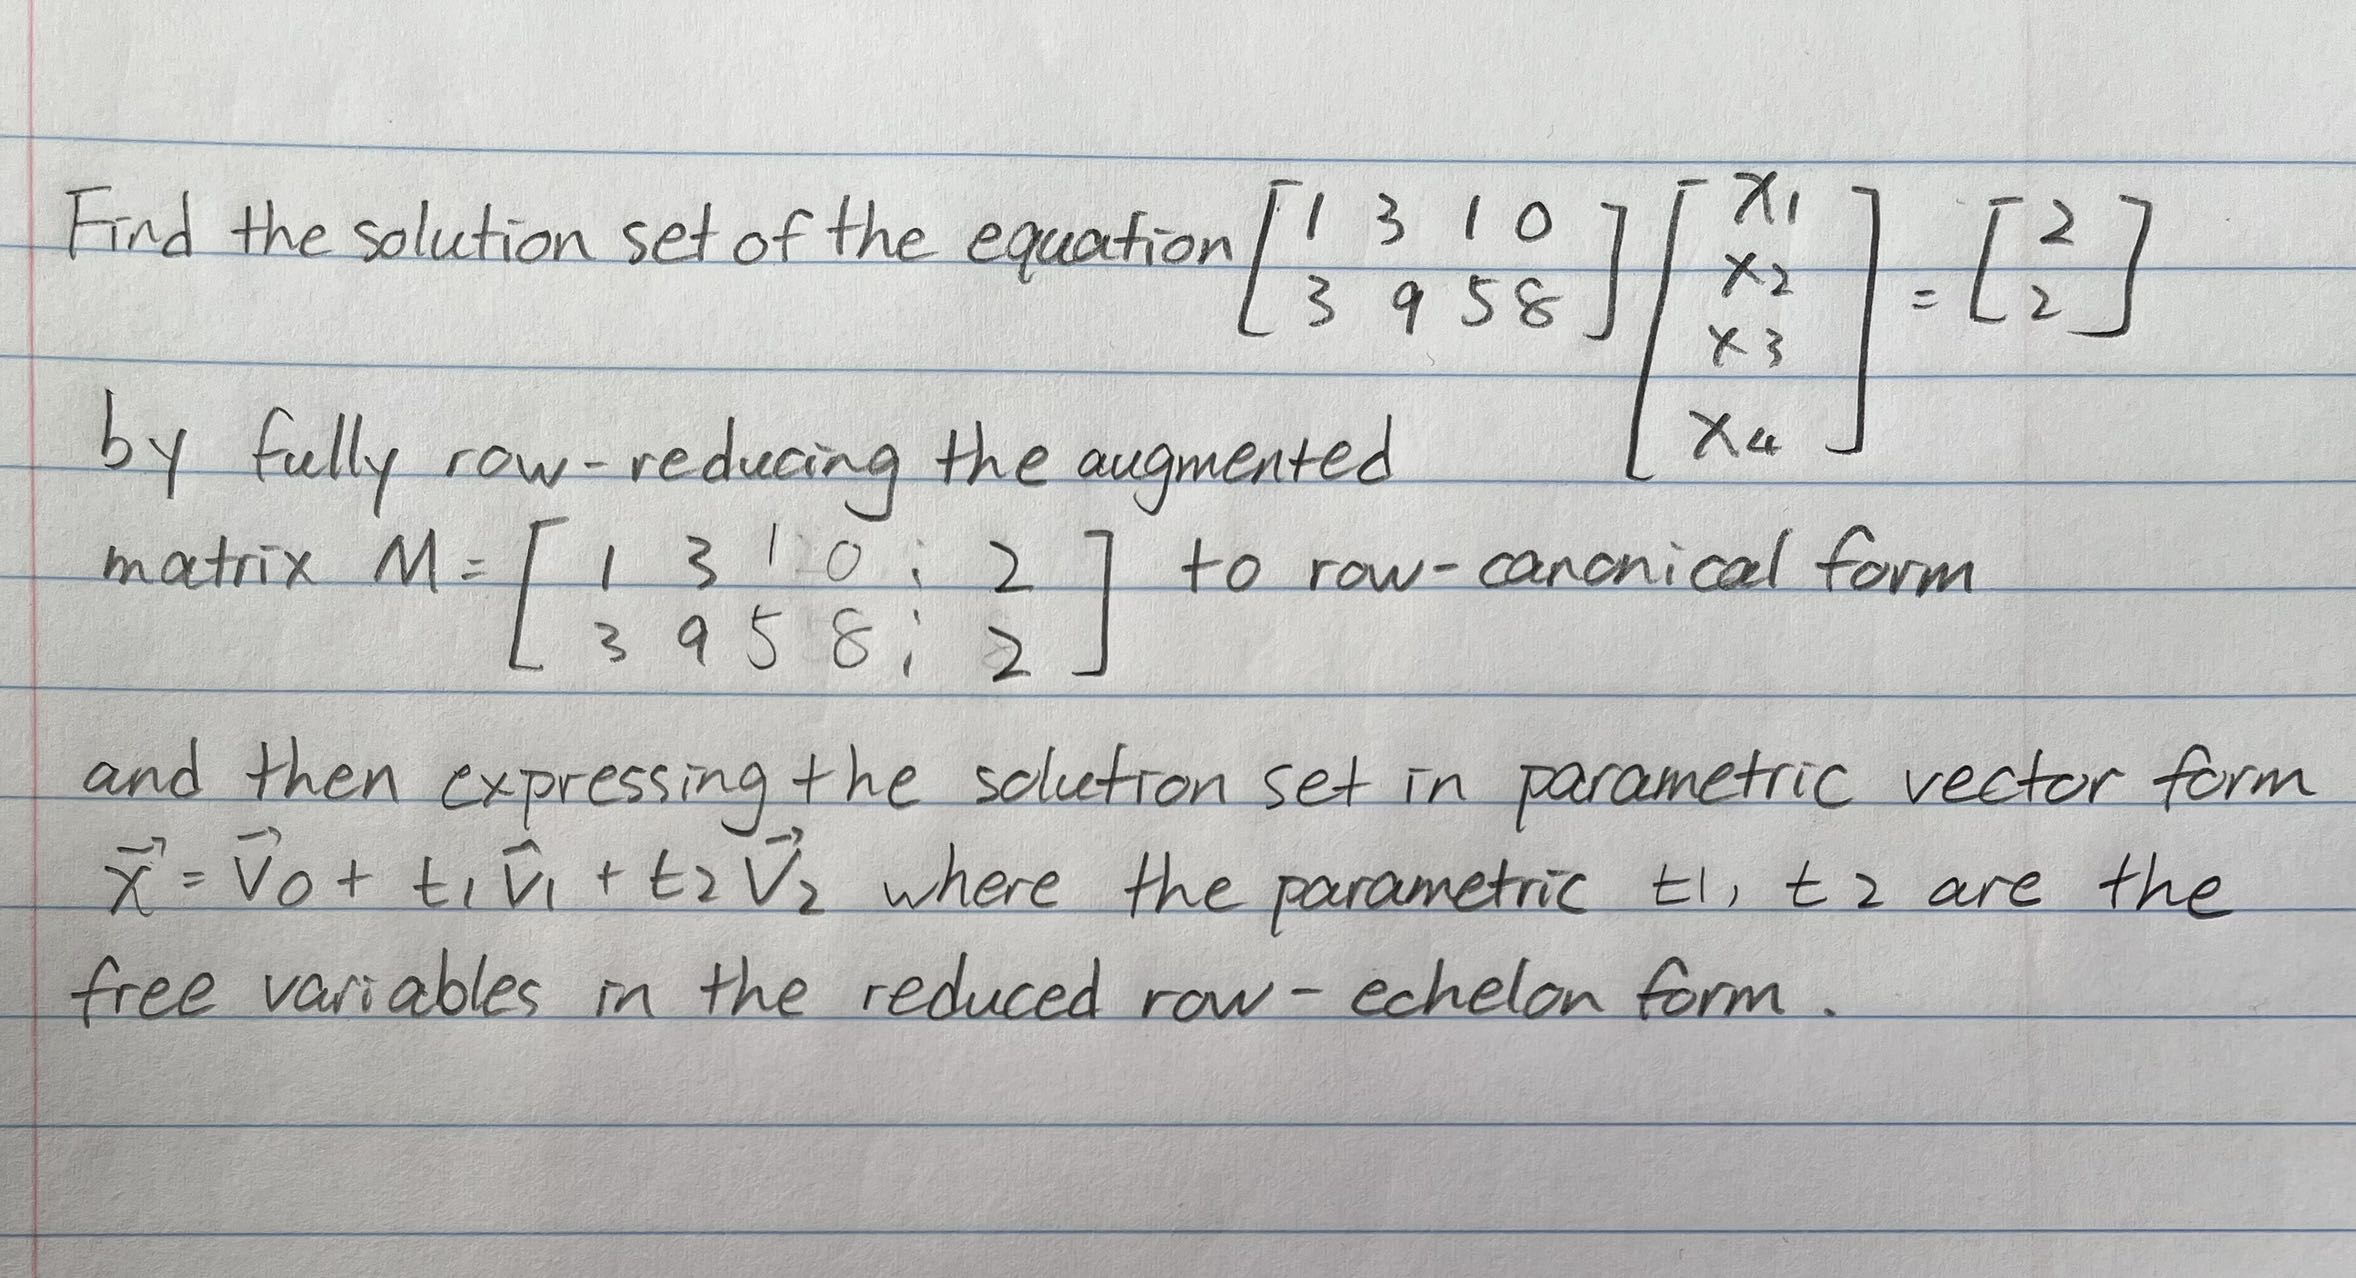 Find the solution set of the equation [1 3 1 0; 3 9 5 8] [x1; x2; x3; x4] = [2; 2]
by fully row-reducing the augmented
matrix M = [1 3 1 0 ⋮ 2; 3 9 5 8 ⋮ 2] to row-canonical form
and then expressing the solution set in parametric vector form
x⃗ = v⃗0 + t1 v⃗1 + t2 v⃗2 where the parametric t1, t2 are the
free variables in the reduced row-echelon form.